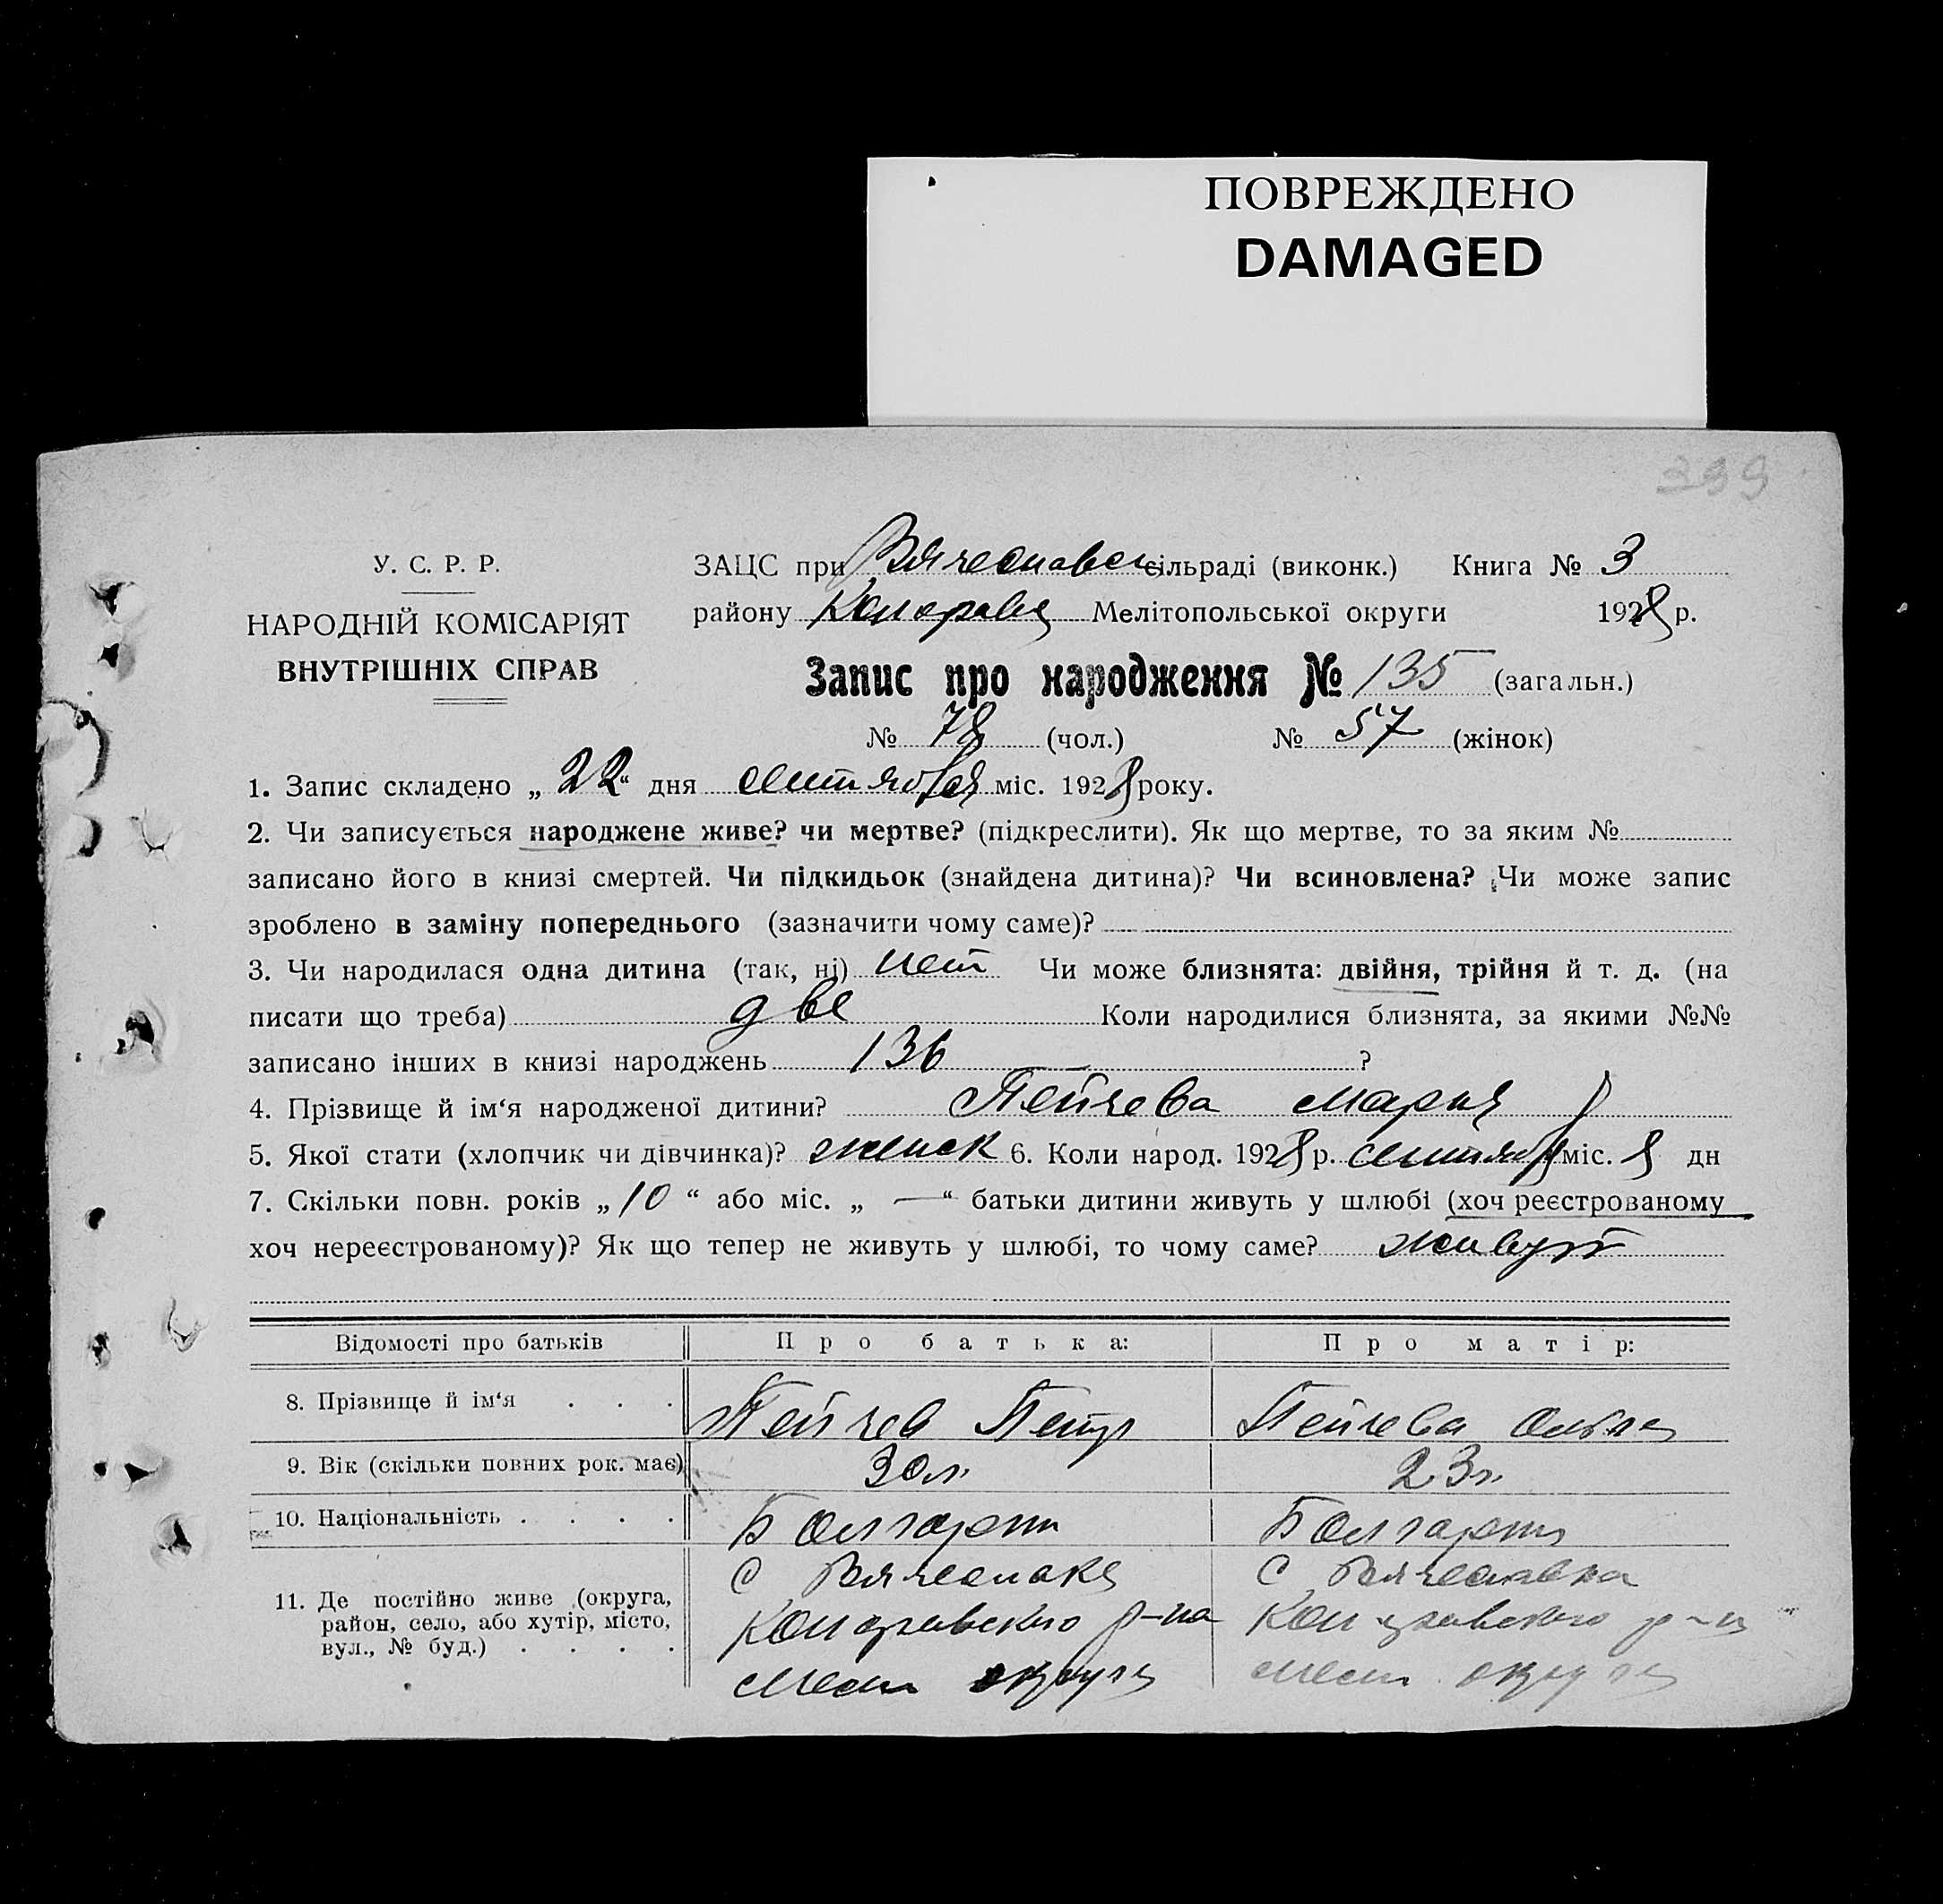 ПОВРЕЖДЕНО
DAMAGED
399
У. С. Р. Р.
НАРОДНІЙ КОМІСАРІЯТ
ВНУТРІШНІХ СПРАВ
ЗАЦС при Вячеславск сільраді (виконк.) Книга № 3
району Коларовск Мелітопольської округи 1928 р.
Запис про народження № 135 (загальн.)
№ 78 (чол.) № 57 (жінок)
1. Запис складено „ 22 “ дня сентября міс. 1928 року.
2. Чи записується народжене живе? чи мертве? (підкреслити). Як що мертве, то за яким №
записано його в книзі смертей. Чи підкидьок (знайдена дитина)? Чи всиновлена? Чи може запис
зроблено в заміну попереднього (зазначити чому саме)?
3. Чи народилася одна дитина (так, ні) нет Чи може близнята: двійня, трійня й т. д. (на
писати що треба) две Коли народилися близнята, за якими №№
записано інших в книзі народжень 136 ?
4. Прізвище й ім‘я народженої дитини? Пейчева Мария
5. Якої стати (хлопчик чи дівчинка)? женск 6. Коли народ. 1928 р. сентября міс. 8 дн
7. Скільки повн. років „ 10 “ або міс. „ — “ батьки дитини живуть у шлюбі (хоч реєстрованому
хоч нереєстрованому)? Як що тепер не живуть у шлюбі, то чому саме? живут
Відомості про батьків Про батька: Про матір:
8. Прізвище й ім‘я . . . Пейчев Петр Пейчева Ольга
9. Вік (скільки повних рок. має) 30 л. 23 г.
10. Національність . . . . Болгарин Болгарка
11. Де постійно живе (округа, С Вячеславка С Вячеславка
район, село, або хутір, місто, Коларовского р-на Коларовского р-на
вул., № буд.) . . . . Мел округи Мел. округи